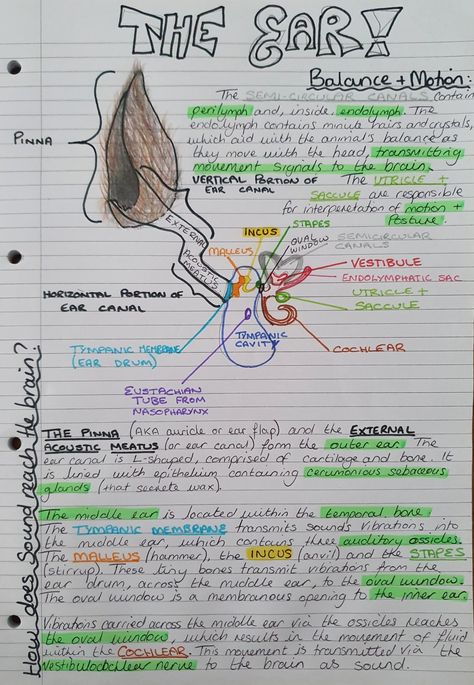 THE EAR!
Balance + Motion:
The SEMI-CIRCULAR CANALS contain
perilymph and, inside, endolymph. The
endolymph contains minute hairs and crystals,
which aid with the animal's balance as
they move with the head, transmitting
movement signals to the brain.
The UTRICLE +
SACCULE are responsible
for interpretation of motion +
posture.
PINNA
VERTICAL PORTION OF
EAR CANAL
EXTERNAL
ACOUSTIC
MEATUS
HORIZONTAL PORTION OF
EAR CANAL
MALLEUS
INCUS
STAPES
OVAL
WINDOW
SEMICIRCULAR
CANALS
VESTIBULE
ENDOLYMPHATIC SAC
UTRICLE +
SACCULE
COCHLEAR
TYMPANIC
CAVITY
TYMPANIC MEMBRANE
(EAR DRUM)
EUSTACHIAN
TUBE FROM
NASOPHARYNX
How does Sound reach the brain?
THE PINNA (AKA auricle or ear flap) and the EXTERNAL
ACOUSTIC MEATUS (or ear canal) form the outer ear. The
ear canal is L-shaped, comprised of cartilage and bone. It
is lined with epithelium containing ceruminous sebaceous
glands (that secrete wax).
The middle ear is located within the temporal bone.
The TYMPANIC MEMBRANE transmits sounds vibrations into
the middle ear, which contains three auditory ossicles.
The MALLEUS (hammer), the INCUS (anvil) and the STAPES
(stirrup). These tiny bones transmit vibrations from the
ear drum, across the middle ear, to the oval window.
The oval window is a membranous opening to the inner ear.
Vibrations carried across the middle ear via the ossicles reaches
the oval window, which results in the movement of fluid
within the COCHLEAR. This movement is transmitted via the
vestibulocochlear nerve to the brain as sound.